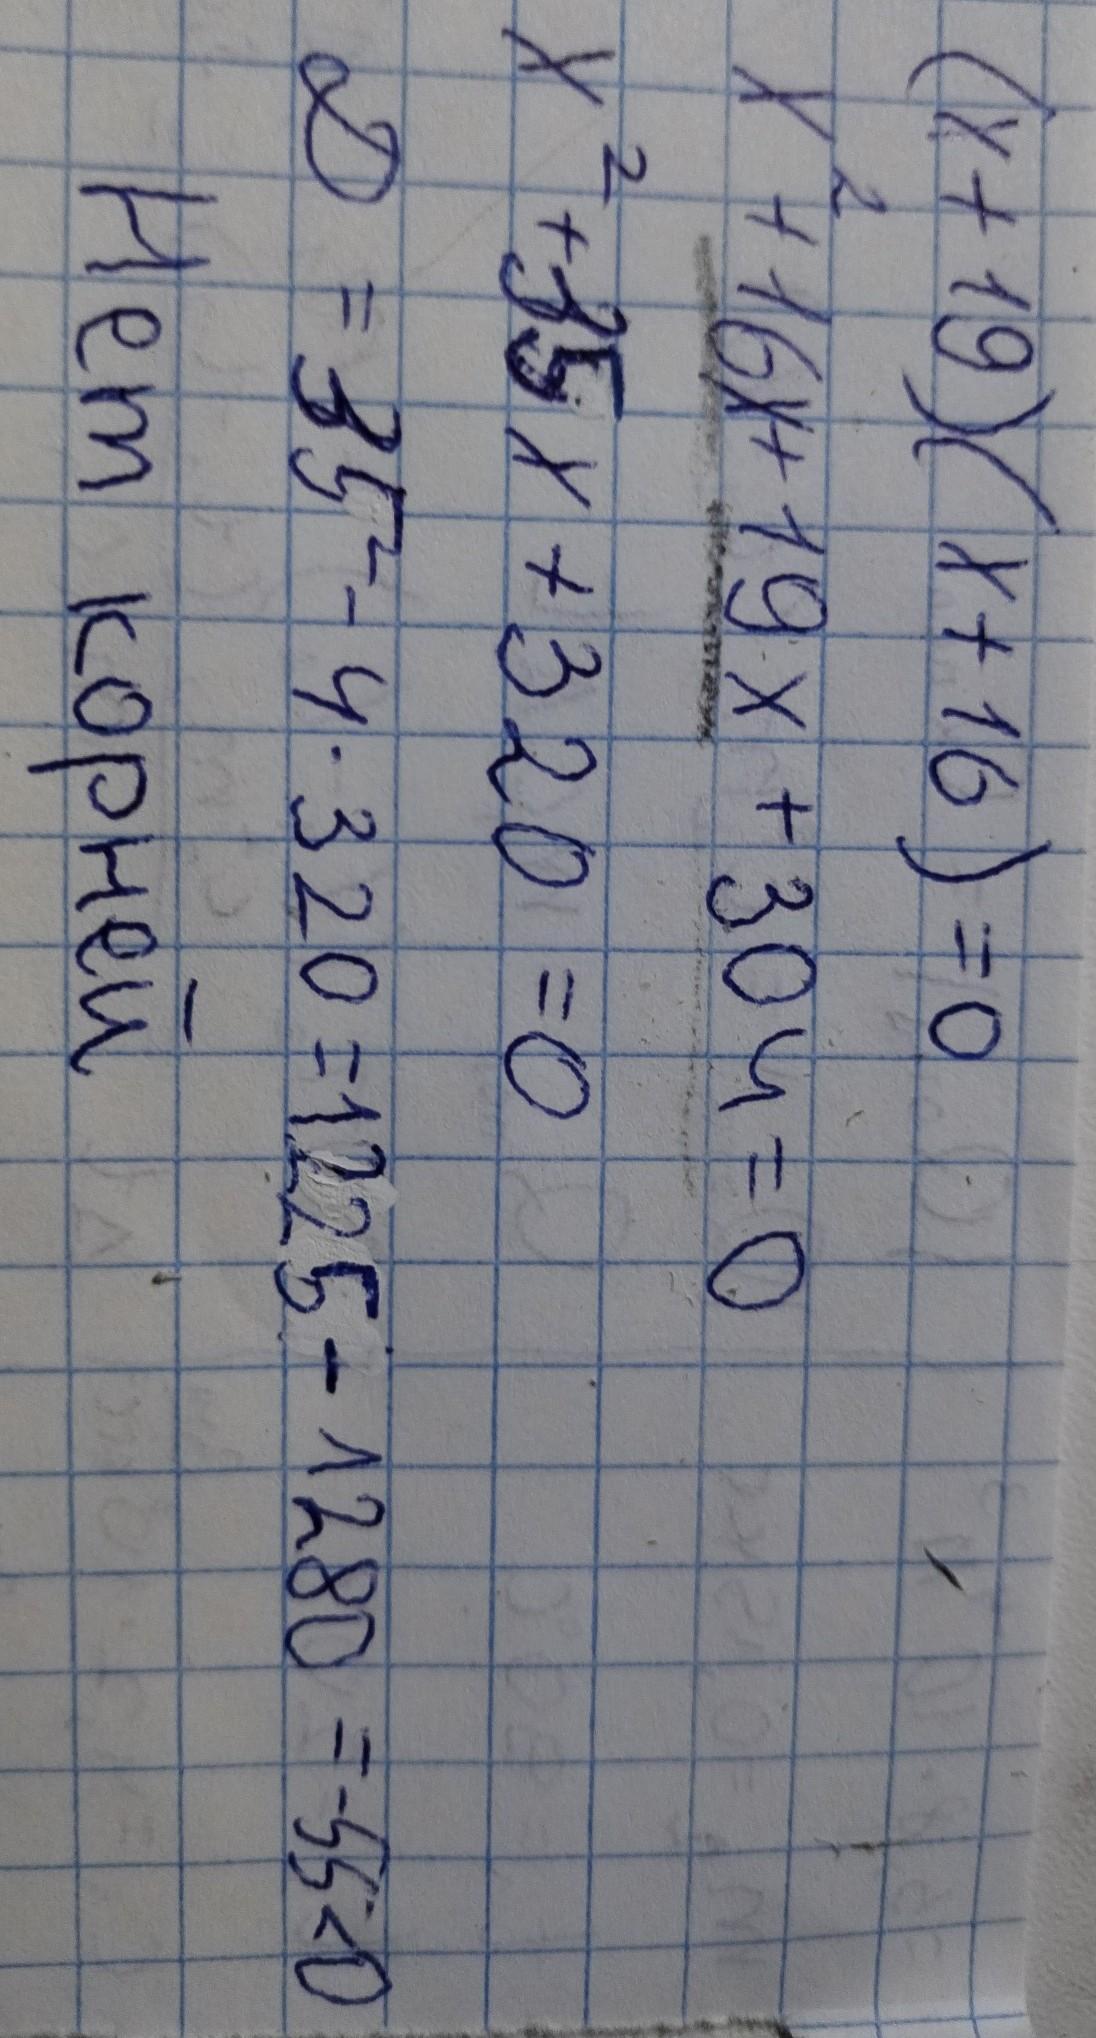 (x+19)(x+16)=0
x²+16x+19x+304=0
x²+35x+320=0
D=35²-4·320=1225-1280=-55<0
Нет корней